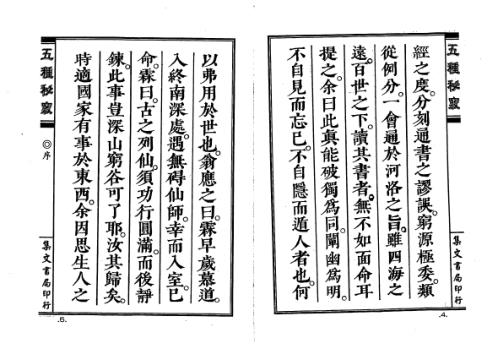 五種秘竅
經之度。分刻通書之謬誤。窮源極委。類
從例分。一會通於河洛之旨。雖四海之
遠。百世之下。讀其書者。無不如面命耳
提之。余曰此眞能破獨爲同。闡幽爲明。
不自見而忘已。不自隱而遁人者也。何
集文書局印行
.4.
五種秘竅
◎序
以弗用於世也。翁應之曰。霖早歲慕道。
入終南深處。遇無碍仙師。幸而入室。已
命。霖曰。古之列仙。須功行圓滿。而後靜
鍊。此事豈深山窮谷可了耶。汝其歸矣。
時適國家有事於東西。余因思生人之
集文書局印行
.5.